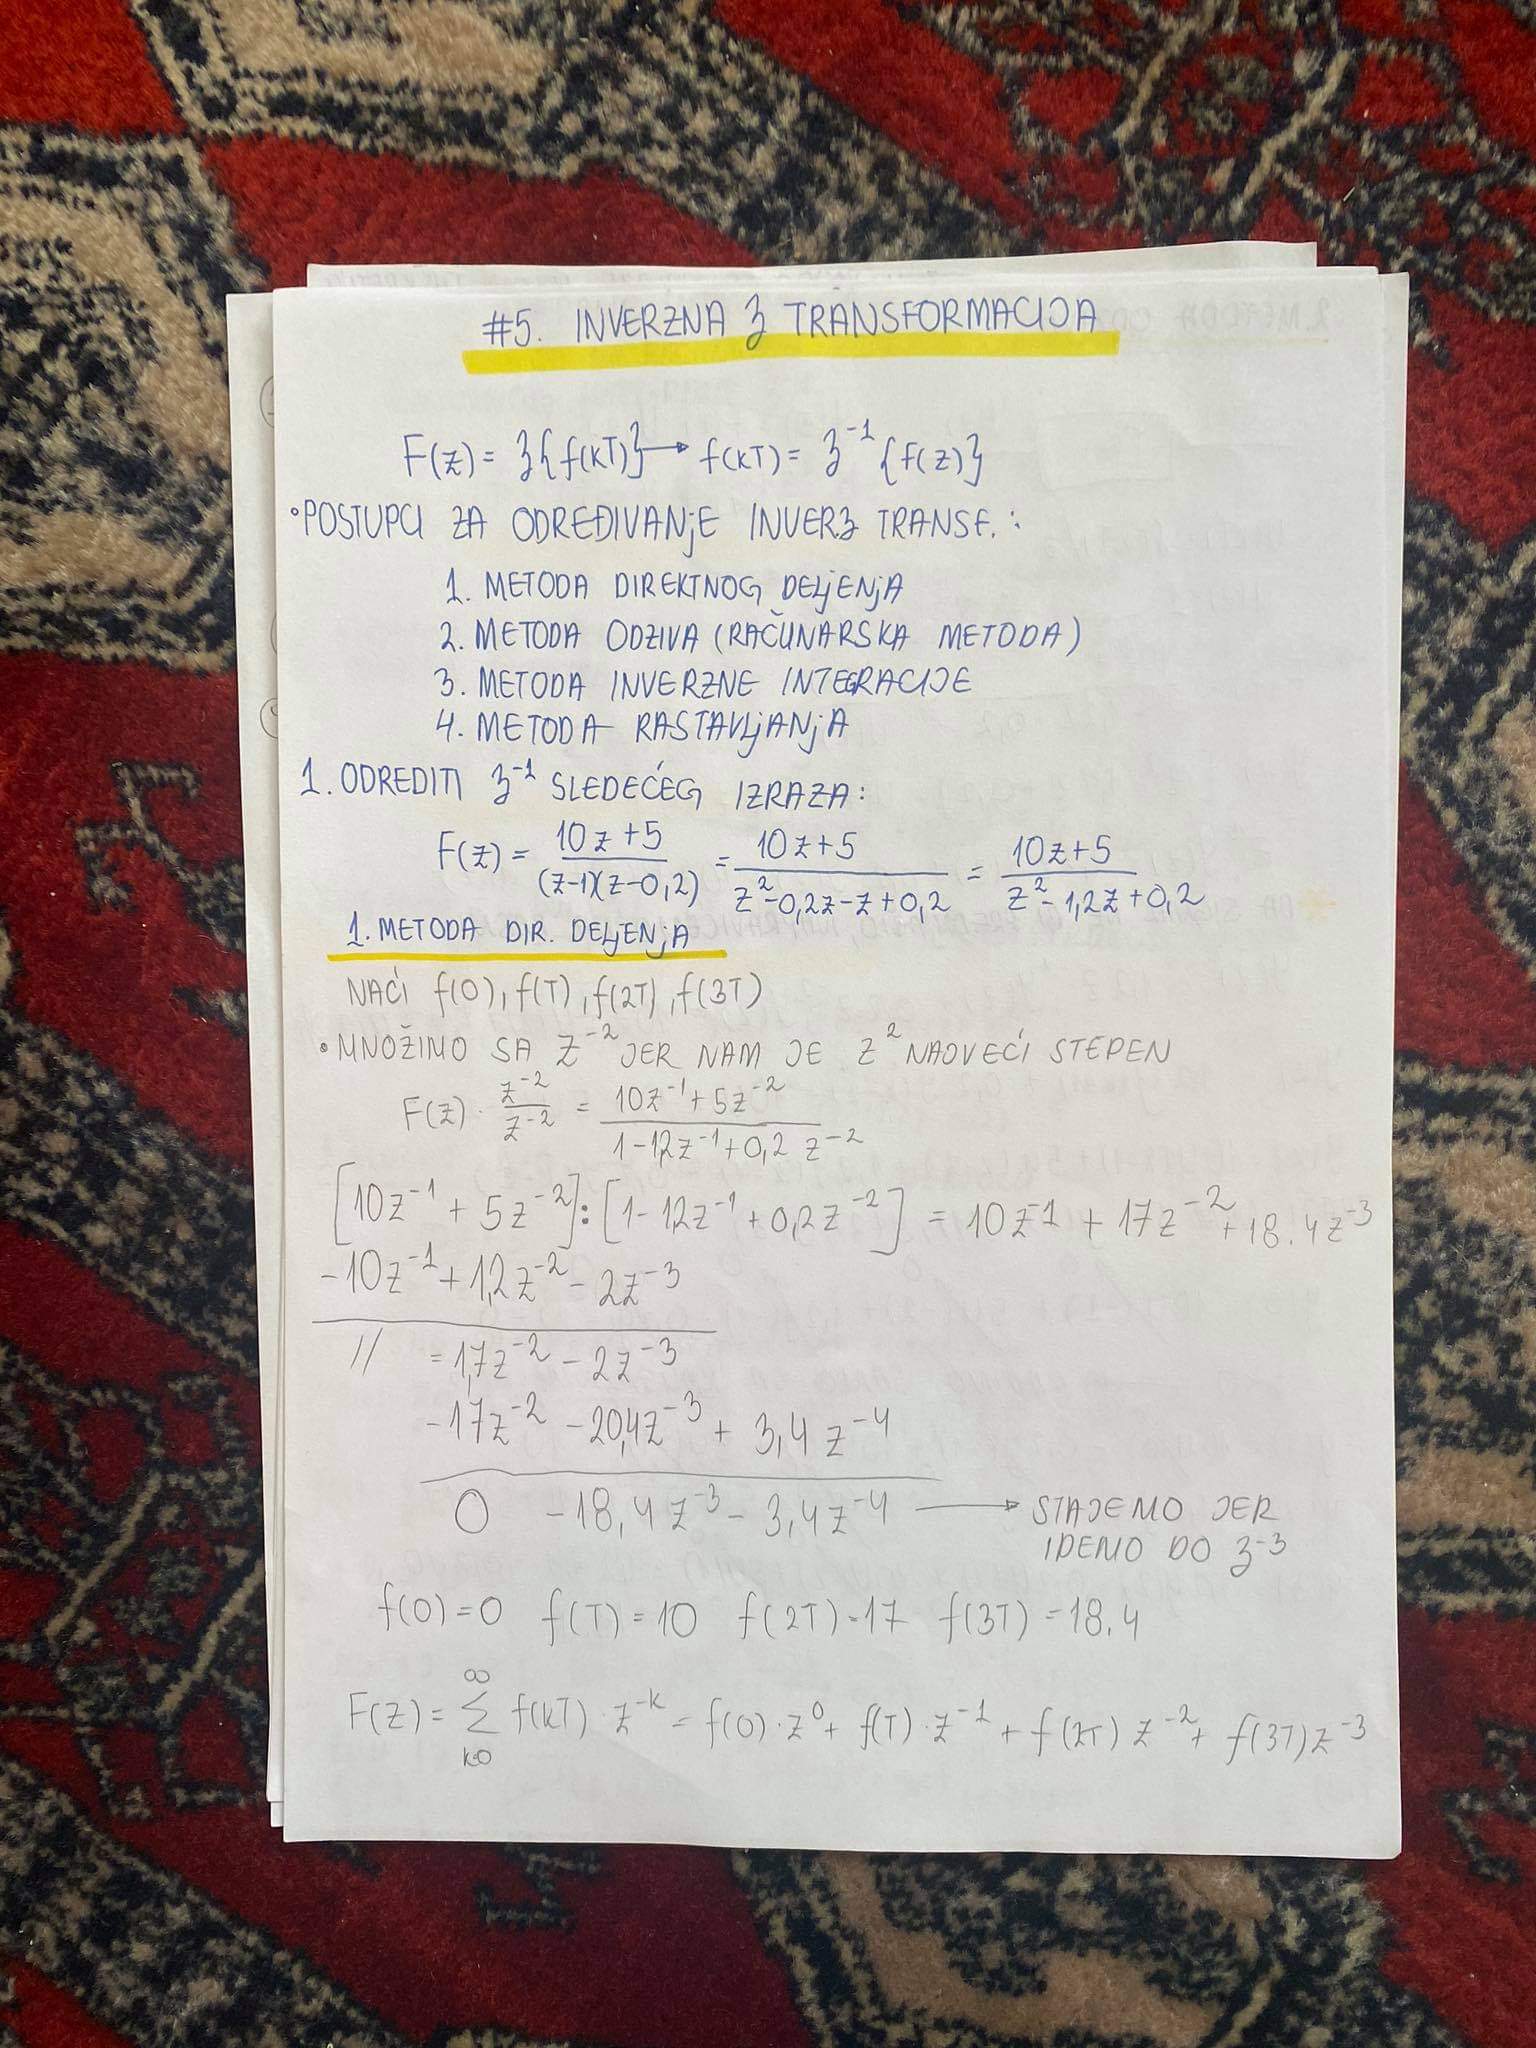 #5. INVERZNA ʒ TRANSFORMACIJA
F(z) = ʒ{f(kT)} → f(kT) = ʒ⁻¹{f(z)}
• POSTUPCI ZA ODREĐIVANjE INVERʒ TRANSF. :
1. METODA DIREKTNOG DELjENjA
2. METODA ODZIVA (RAČUNARSKA METODA)
3. METODA INVERZNE INTEGRACIJE
4. METODA RASTAVLjANjA
1. ODREDITI ʒ⁻¹ SLEDEĆEG IZRAZA:
F(z) = (10z+5)/((z-1)(z-0,2)) = (10z+5)/(z²-0,2z-z+0,2) = (10z+5)/(z²-1,2z+0,2)
1. METODA DIR. DELjENjA
NAĆI f(0), f(T), f(2T), f(3T)
• MNOŽIMO SA Z⁻² JER NAM JE Z² NAJVEĆI STEPEN
F(z) · z⁻²/z⁻² = (10z⁻¹+5z⁻²)/(1-1,2z⁻¹+0,2 z⁻²)
[10z⁻¹ + 5z⁻²] : [1-1,2z⁻¹+0,2z⁻²] = 10z⁻¹ + 17z⁻² + 18.4z⁻³
-10z⁻¹ + 1,2z⁻² - 2z⁻³
// = 1,7z⁻² - 2z⁻³
-17z⁻² - 20,4z⁻³ + 3,4 z⁻⁴
0 -18,4 z⁻³ - 3,4z⁻⁴ → STAJEMO JER
IDEMO DO ʒ⁻³
f(0)=0 f(T)=10 f(2T)=17 f(3T)=18.4
F(z) = ∞∑k=0 f(kT) · z⁻ᵏ = f(0) · z⁰ + f(T) · z⁻¹ + f(2T) z⁻² + f(3T)z⁻³